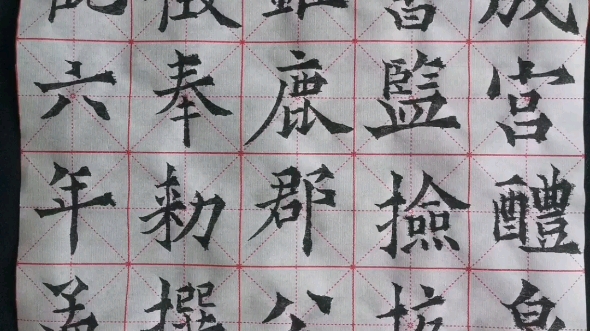 成宮醴泉
書監撿挍
鉅鹿郡公
徵奉勅撰
六年孟